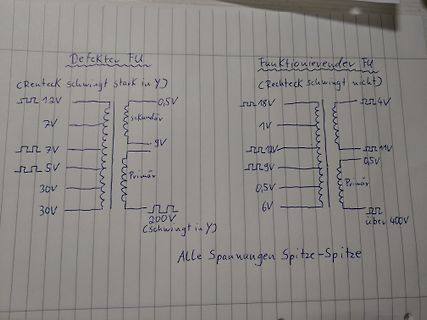 Defekter FU
(Reuteck schwingt stark in Y)
12V
7V
7V
5V
30V
30V
0,5V
sekundär
9V
Primär
200V
(schwingt in Y)
Funktionierender FU
(Rechteck schwingt nicht)
18V
1V
12V
9V
0,5V
6V
4V
11V
0,5V
Primär
über 400V
Alle Spannungen Spitze-Spitze